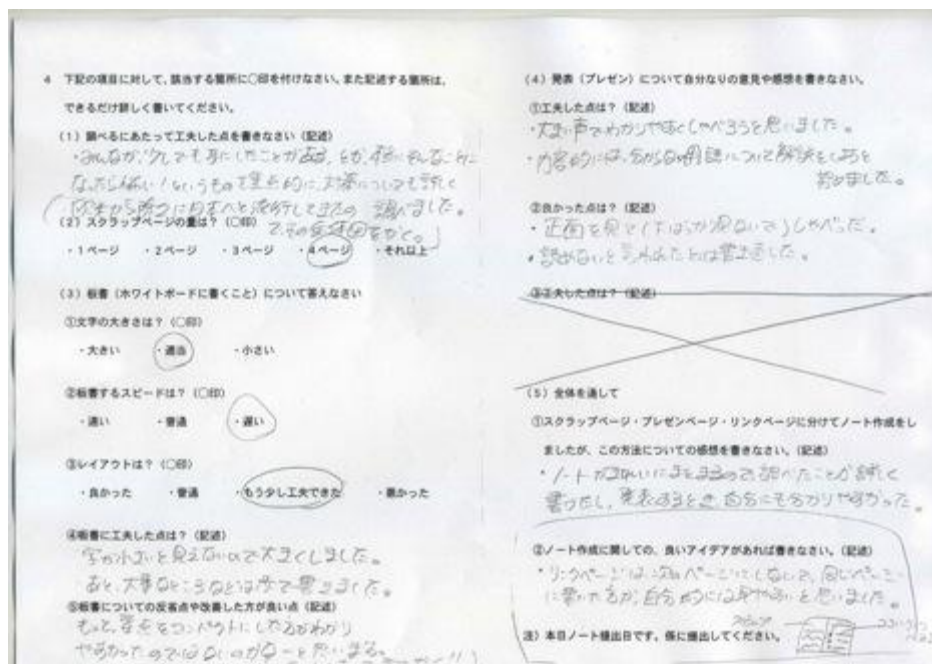 4 下記の項目に対して、該当する箇所に○印を付けなさい。また記述する箇所は、
できるだけ詳しく書いてください。
(1)調べるにあたって工夫した点を書きなさい(記述)
・みんなが、少しでも耳にしたことがある、とか、
なったら怖い!というものを重点的に、対策についても詳しく
調べました。
(2)スクラップページの量は?(○印)
・1ページ ・2ページ ・3ページ ・4ページ ・それ以上
(3)板書(ホワイトボードに書くこと)について答えなさい
①文字の大きさは?(○印)
・大きい ・適当 ・小さい
②板書するスピードは?(○印)
・速い ・普通 ・遅い
③レイアウトは?(○印)
・良かった ・普通 ・もう少し工夫できた ・悪かった
④板書に工夫した点は?(記述)
字が小さいと見えないので大きくしました。
あと、大事なところなどは赤で書きました。
⑤板書についての反省点や改善した方が良い点(記述)
もっと、要点をコンパクトにした方がわかり
やすかったのではないのかなーと思います。
(4)発表(プレゼン)について自分なりの意見や感想を書きなさい。
①工夫した点は?(記述)
・大きい声でわかりやすくしゃべろうと思いました。
・内容的には、分からない用語について解説をしようと
努めました。
②良かった点は?(記述)
・正面を見て(下ばっか見ないで)しゃべった。
・読めないと言われた
③工夫した点は?(記述)
(5)全体を通して
①スクラップページ・プレゼンページ・リンクページに分けてノート作成をし
ましたが、この方法についての感想を書きなさい。(記述)
・ノートがきれいにまとまるので、調べたことが詳しく
書けたし、発表するとき、自分にも分かりやすかった。
②ノート作成に関しての、良いアイデアがあれば書きなさい。(記述)
・リンクページは次のページにしないで、同じページ
に書いた方が、自分的には見やすいと思いました。
注)本日ノート提出日です。係に提出してください。